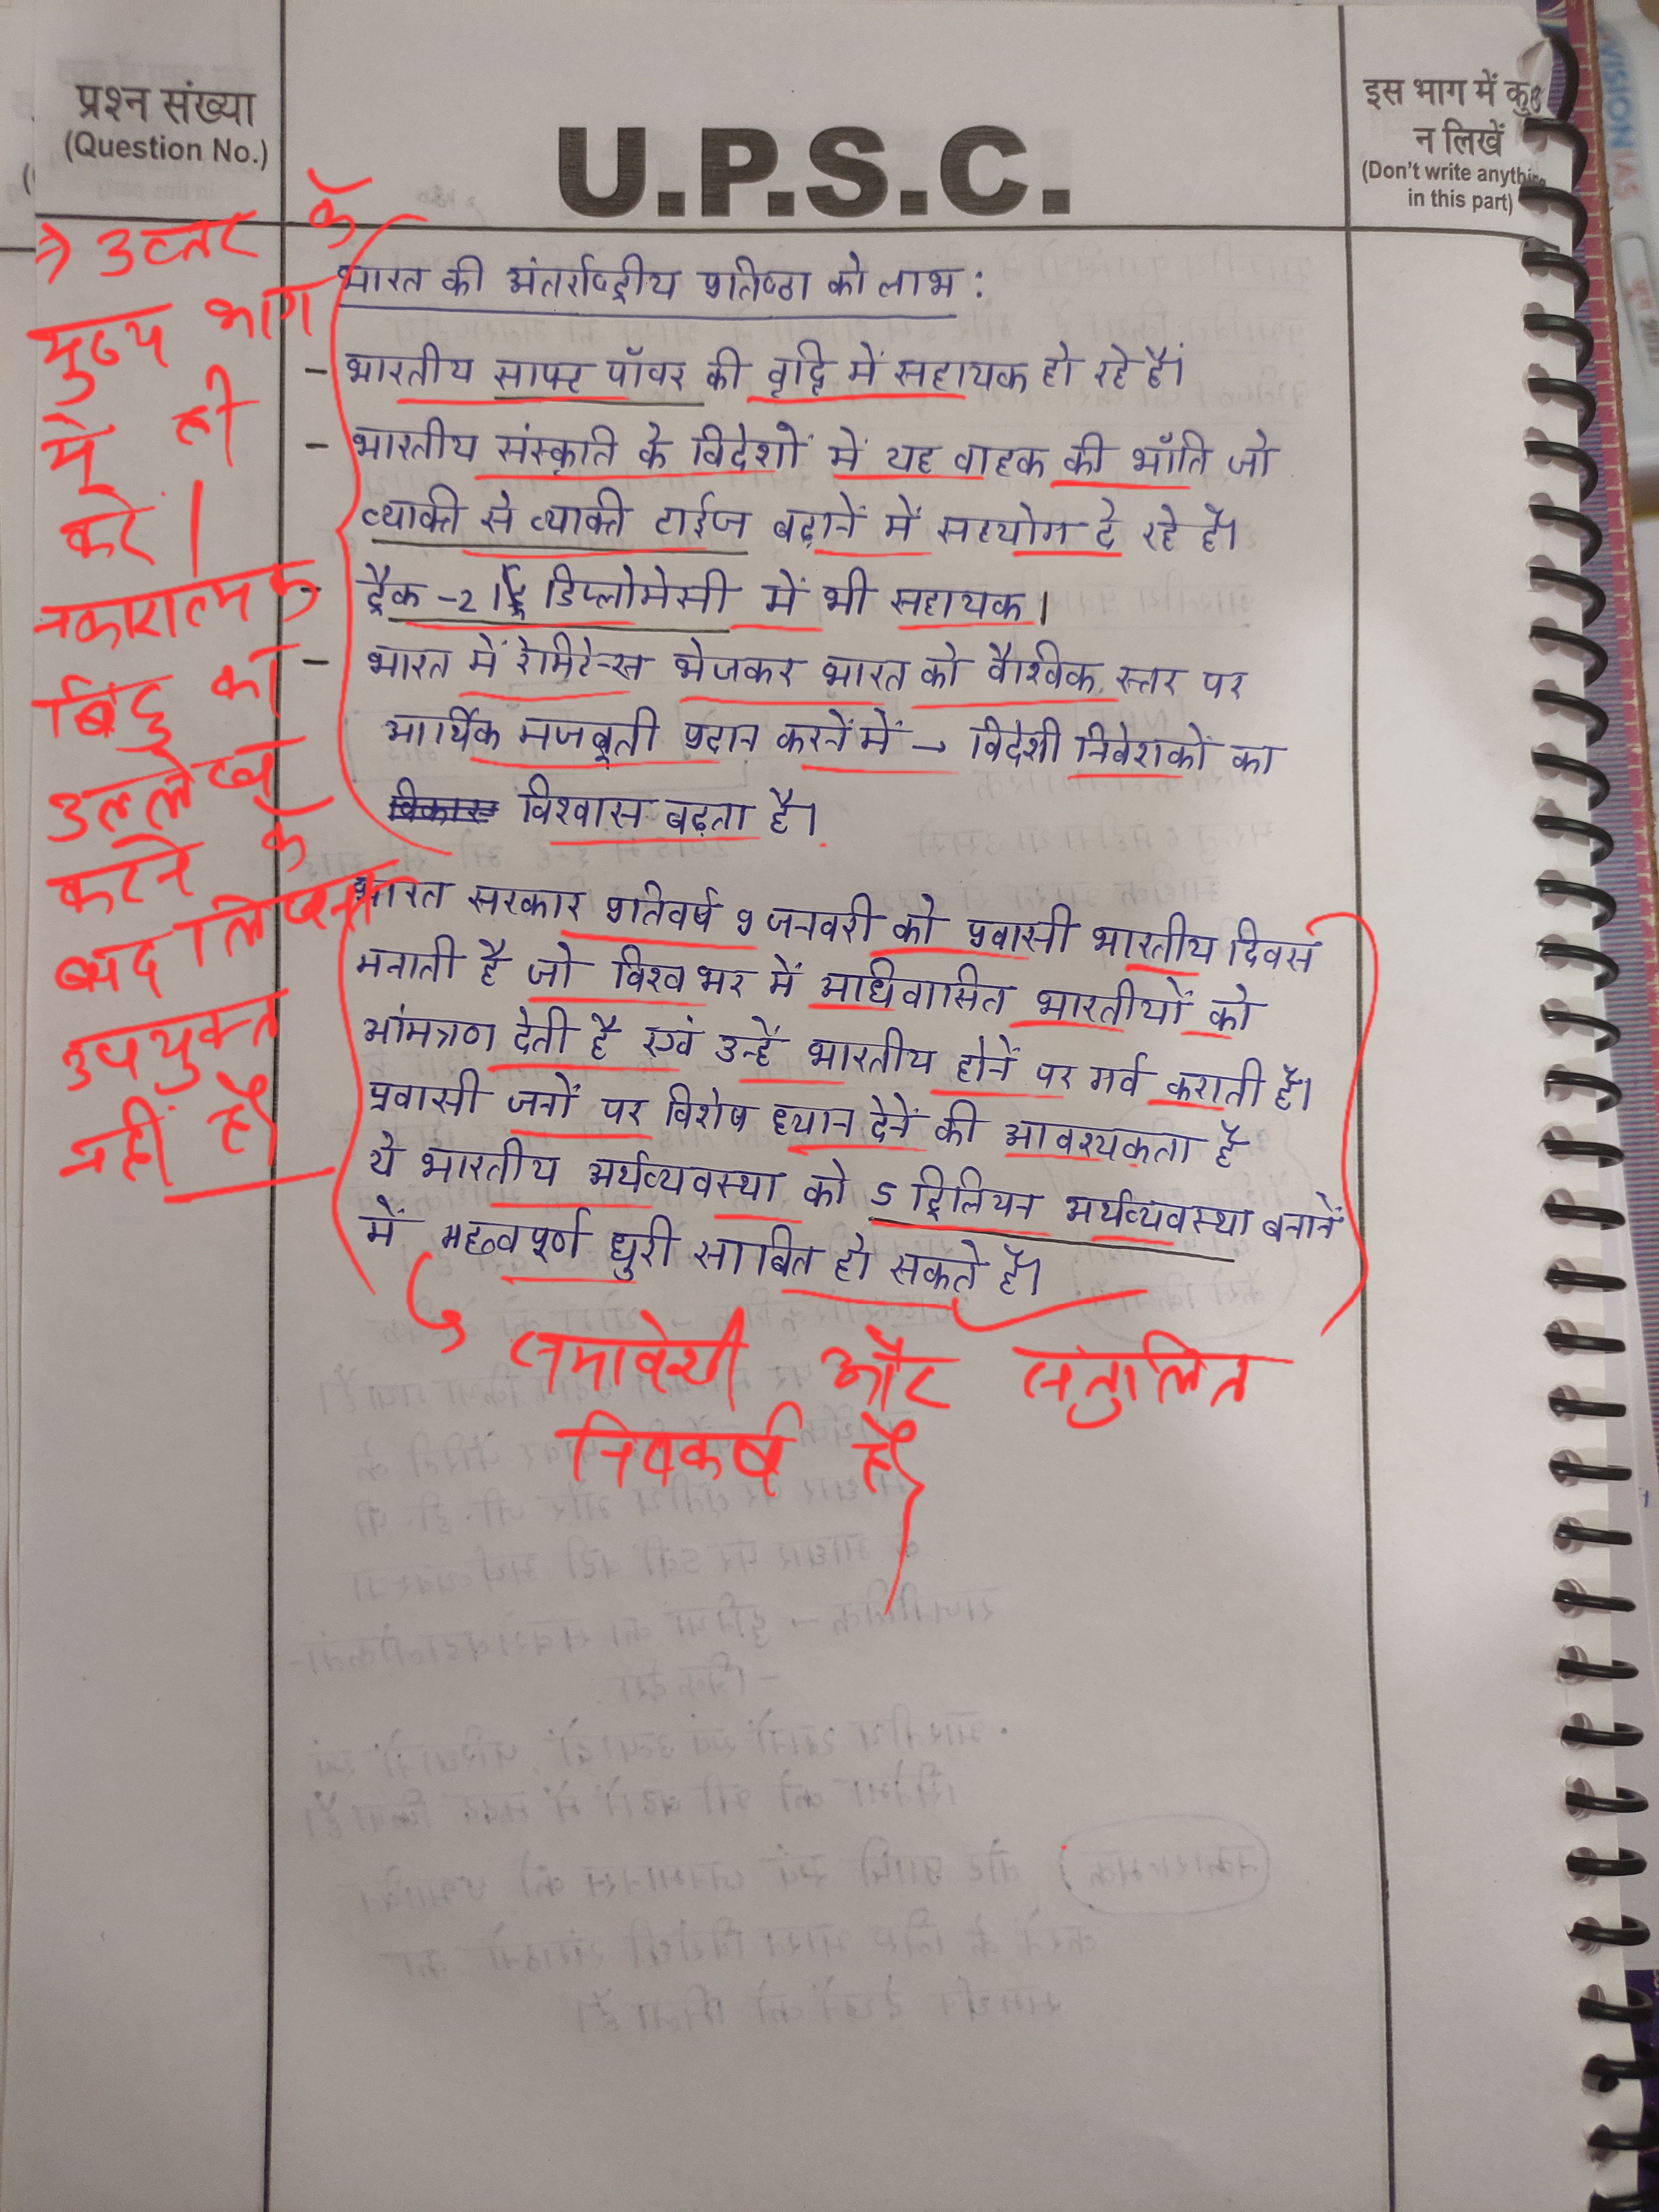 प्रश्न संख्या
(Question No.)
U.P.S.C.
इस भाग में कुछ
न लिखें
(Don't write anything
in this part)
VISION IAS
→ उत्तर के
मुख्य भाग
में ही
करें।
नकारात्मक
बिंदु का
उल्लेख
करने के
बाद लिखना
उपयुक्त
नहीं है
भारत की अंतर्राष्ट्रीय प्रतिष्ठा को लाभ :
- भारतीय साफ्ट पॉवर की वृद्धि में सहायक हो रहे हैं।
- भारतीय संस्कृति के विदेशों में यह वाहक की भाँति जो
व्यक्ति से व्यक्ति टाईज बढ़ानें में सहयोग दे रहे हैं।
- ट्रैक -2 डिप्लोमेसी में भी सहायक।
- भारत में रेमिटेन्स भेजकर भारत को वैश्विक स्तर पर
आर्थिक मजबूती प्रदान करनें में → विदेशी निवेशकों का
विकास विश्वास बढ़ता है।
भारत सरकार प्रतिवर्ष 9 जनवरी को प्रवासी भारतीय दिवस
मनाती है जो विश्व भर में अधिवासित भारतीयों को
आंमत्रण देती है एवं उन्हें भारतीय होनें पर गर्व कराती है।
प्रवासी जनों पर विशेष ध्यान देनें की आवश्यकता है
ये भारतीय अर्थव्यवस्था को 5 ट्रिलियन अर्थव्यवस्था बनानें
में महत्वपूर्ण धुरी साबित हो सकते है।
समावेशी और सतुलित
निष्कर्ष है